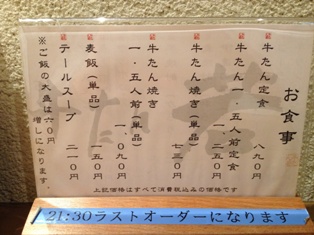 お食事
牛たん定食 八九〇
牛たん一・五人前定食 一、二五〇
牛たん焼き(単品) 七三〇
牛たん焼き
一・五人前(単品) 一、〇九〇
麦飯(単品) 一五〇
テールスープ 二一〇
※ご飯の大盛は六〇円
増しになります。
上記価格はすべて消費税込みの価格です
21:30ラストオーダーになります